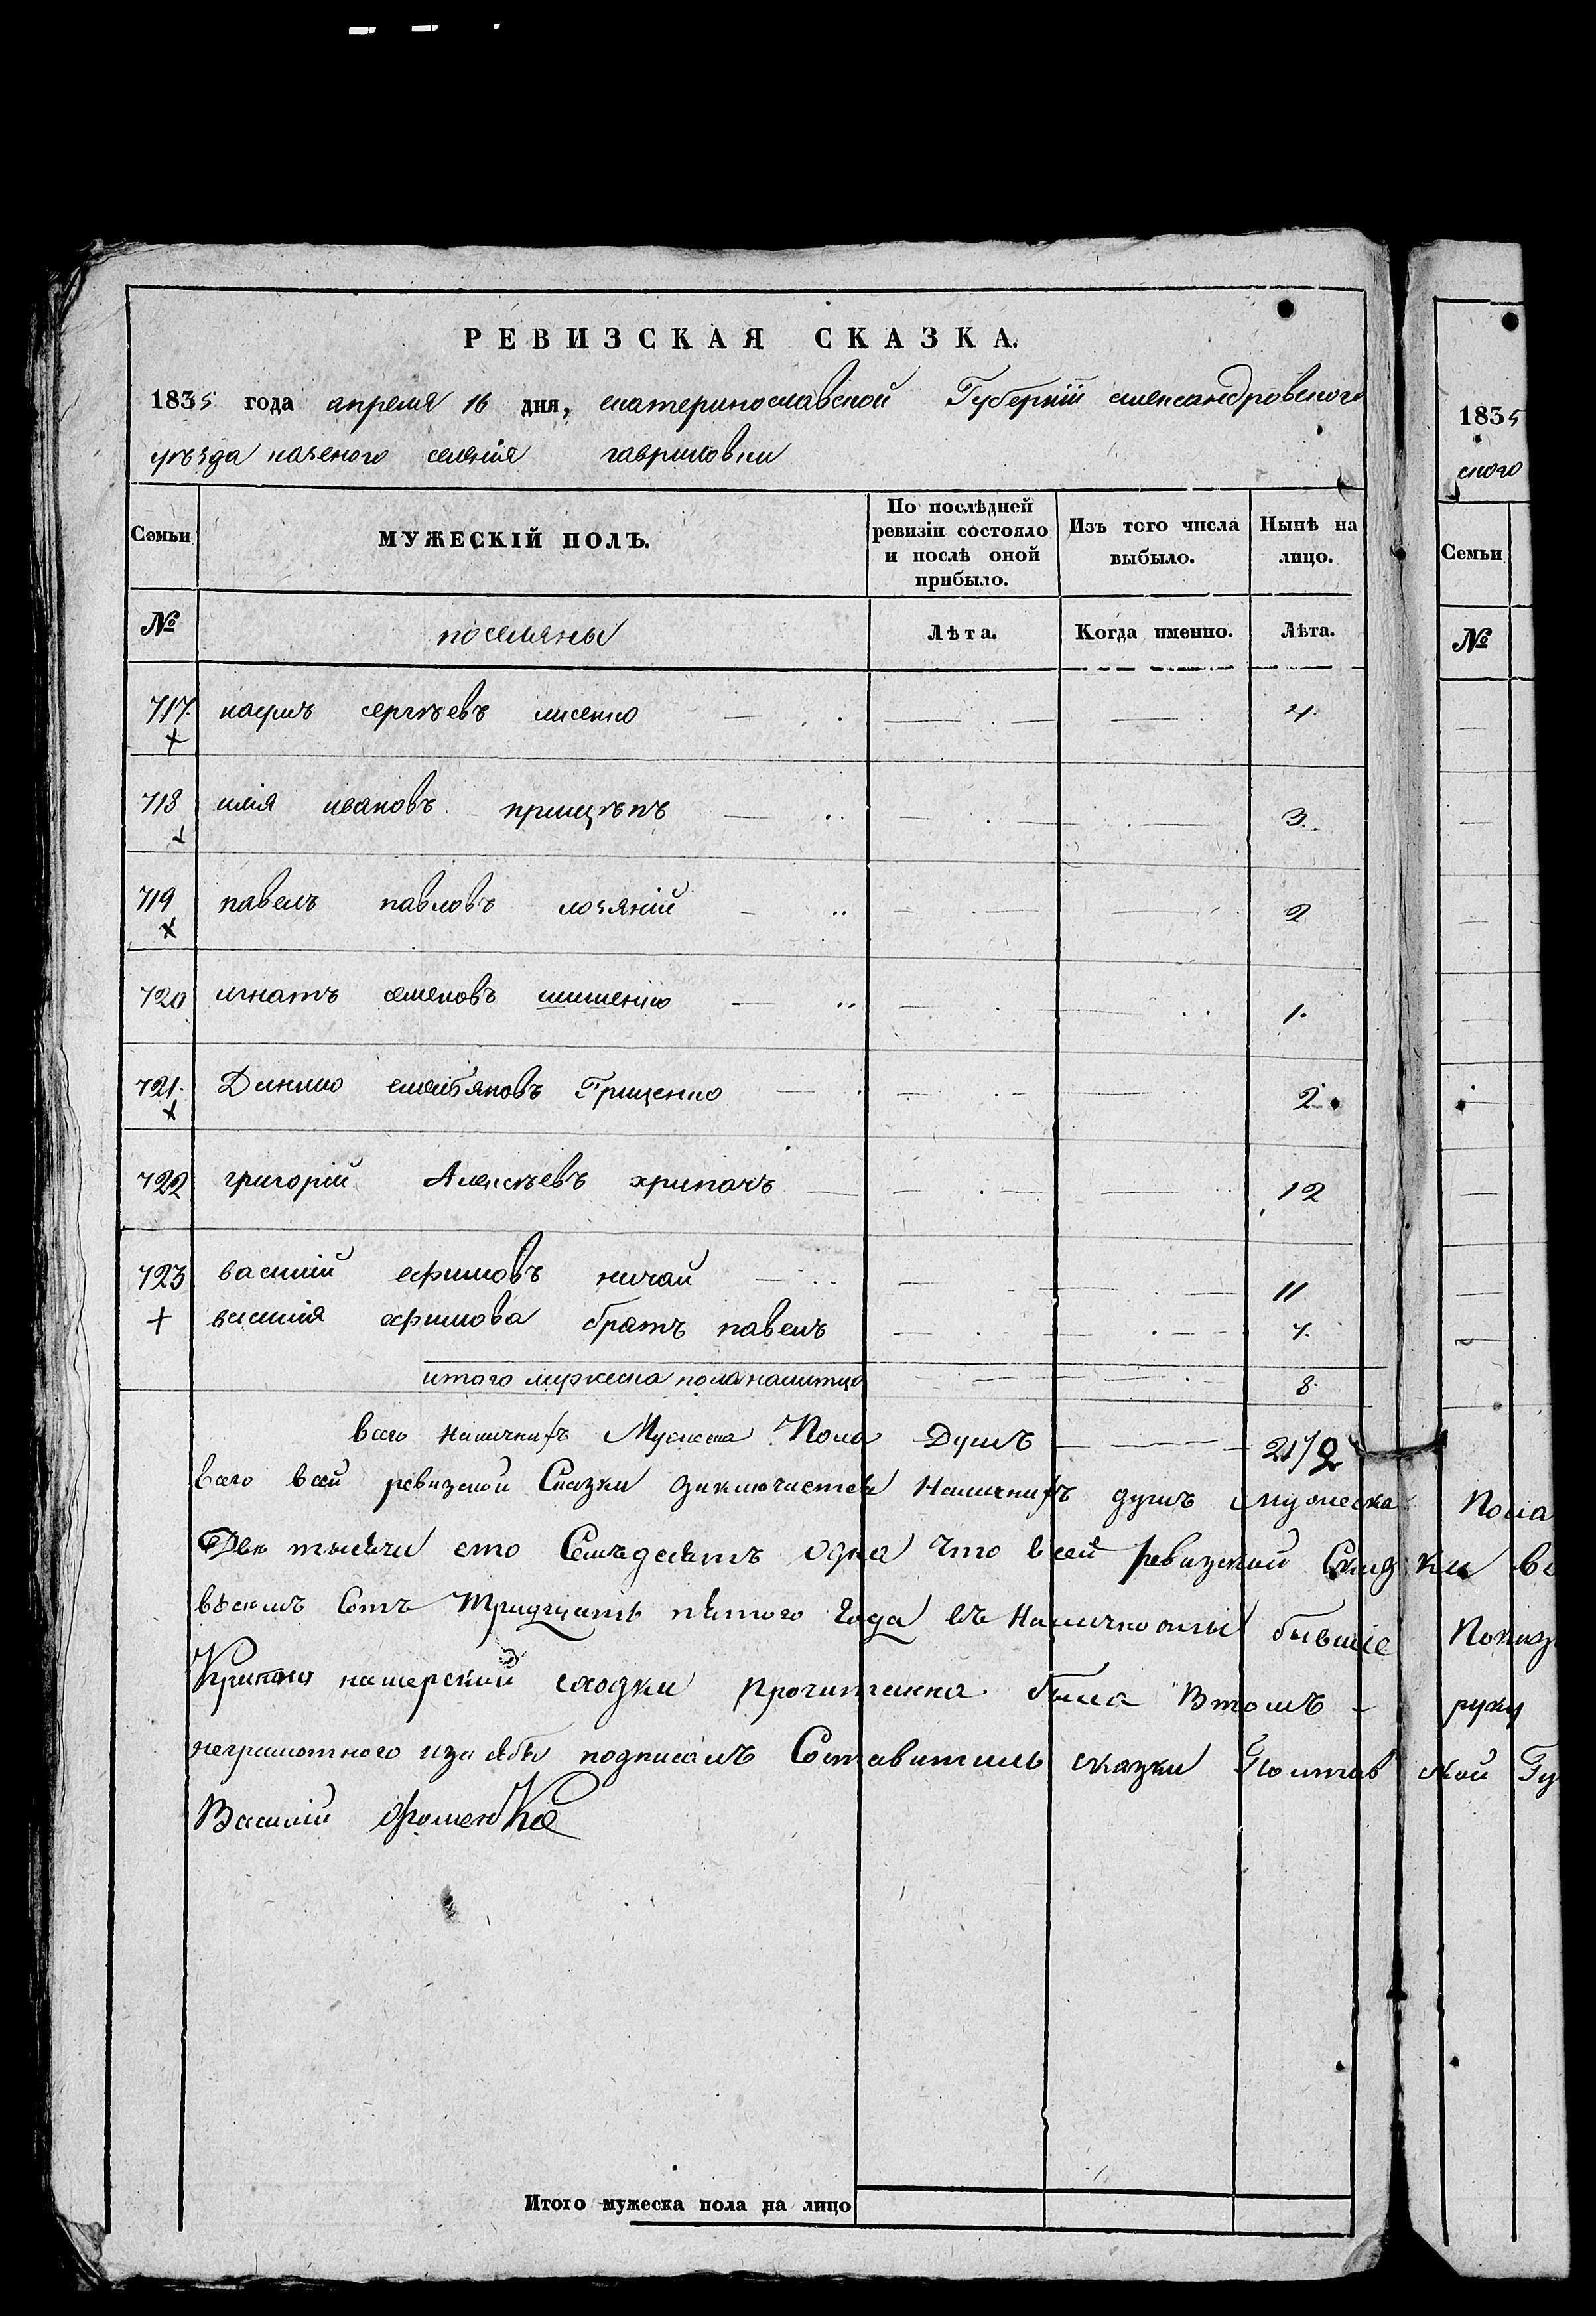 РЕВИЗСКАЯ СКАЗКА.
1835 года апреля 16 дня, екатеринославской Губерніи александровского
уѣзда казеного селенія гавриловки
Семьи
МУЖЕСКІЙ ПОЛЪ.
По послѣдней ревизіи состояло и послѣ оной прибыло.
Изъ того числа выбыло.
Нынѣ на лицо.
№ поселяны Лѣта. Когда именно. Лѣта.
717. сергѣевъ лисенко 4.
718 илія ивановъ прищепъ 3.
719 павелъ павловъ 2
720 игнатъ семеновъ 1.
721. Данило Грищенко 2.
722 григорій Алексѣевъ хрипачъ 12
723 василій ефимовъ ничай 11
василія ефимова братъ павелъ 7.
итого мужеска пола налицо 8.
всего наличнихъ Мужеска Пола Душъ
всего всей ревизской Сказки заключается Наличнихъ душъ мужеска Пола
Две тысячи сто Семьдесятъ одна Что всей ревизской Сказки
Сотъ Тридцать пятого Года въ Наличности бывшіе
сходки прочитанна была Втомъ руку
неграмотного изасебя подписалъ Составитель сказки Полтавской Гу
Василій Фоменко
Итого мужеска пола на лицо
1835
ского
Семьи
№